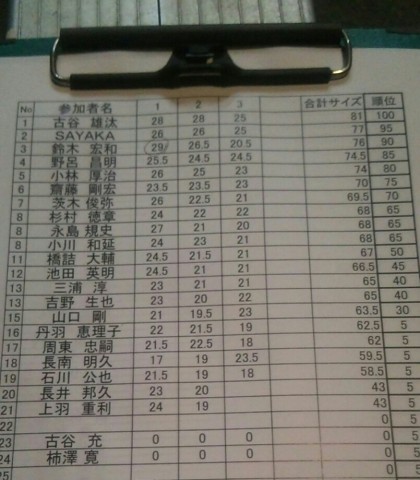 No 参加者名 1 2 3 合計サイズ 順位
1 古谷 雄汰 28 28 25 81 100
2 SAYAKA 26 26 25 77 95
3 鈴木 宏和 29 26.5 20.5 76 90
4 野呂 昌明 25.5 24.5 24.5 74.5 85
5 小林 厚治 26 25 23 74 80
6 齋藤 剛宏 23.5 23.5 23 70 75
7 茨木 俊弥 26 22.5 21 69.5 70
8 杉村 徳章 24 22 22 68 65
8 永島 規史 27 21 20 68 65
8 小川 和延 24 23 21 68 65
11 橋詰 大輔 24.5 21.5 21 67 50
12 池田 英明 24.5 21 21 66.5 45
13 三浦 淳 23 21 21 65 40
13 吉野 生也 23 20 22 65 40
15 山口 剛 21 19.5 23 63.5 30
16 丹羽 恵理子 22 21.5 19 62.5 5
17 周東 忠嗣 21.5 22.5 18 62 5
18 長南 明久 17 19 23.5 59.5 5
19 石川 公也 21.5 19 18 58.5 5
20 長井 邦久 23 20 43 5
21 上羽 重利 24 19 43 5
22 0 5
23 古谷 充 0 0 0 0 5
24 柿澤 寛 0 0 0 0 5
25